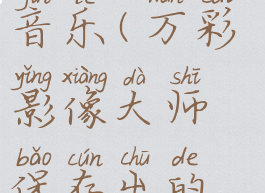 音乐(万彩
yǐng xiàng dà shī
影像大师
bǎo cún chū de
保存出的